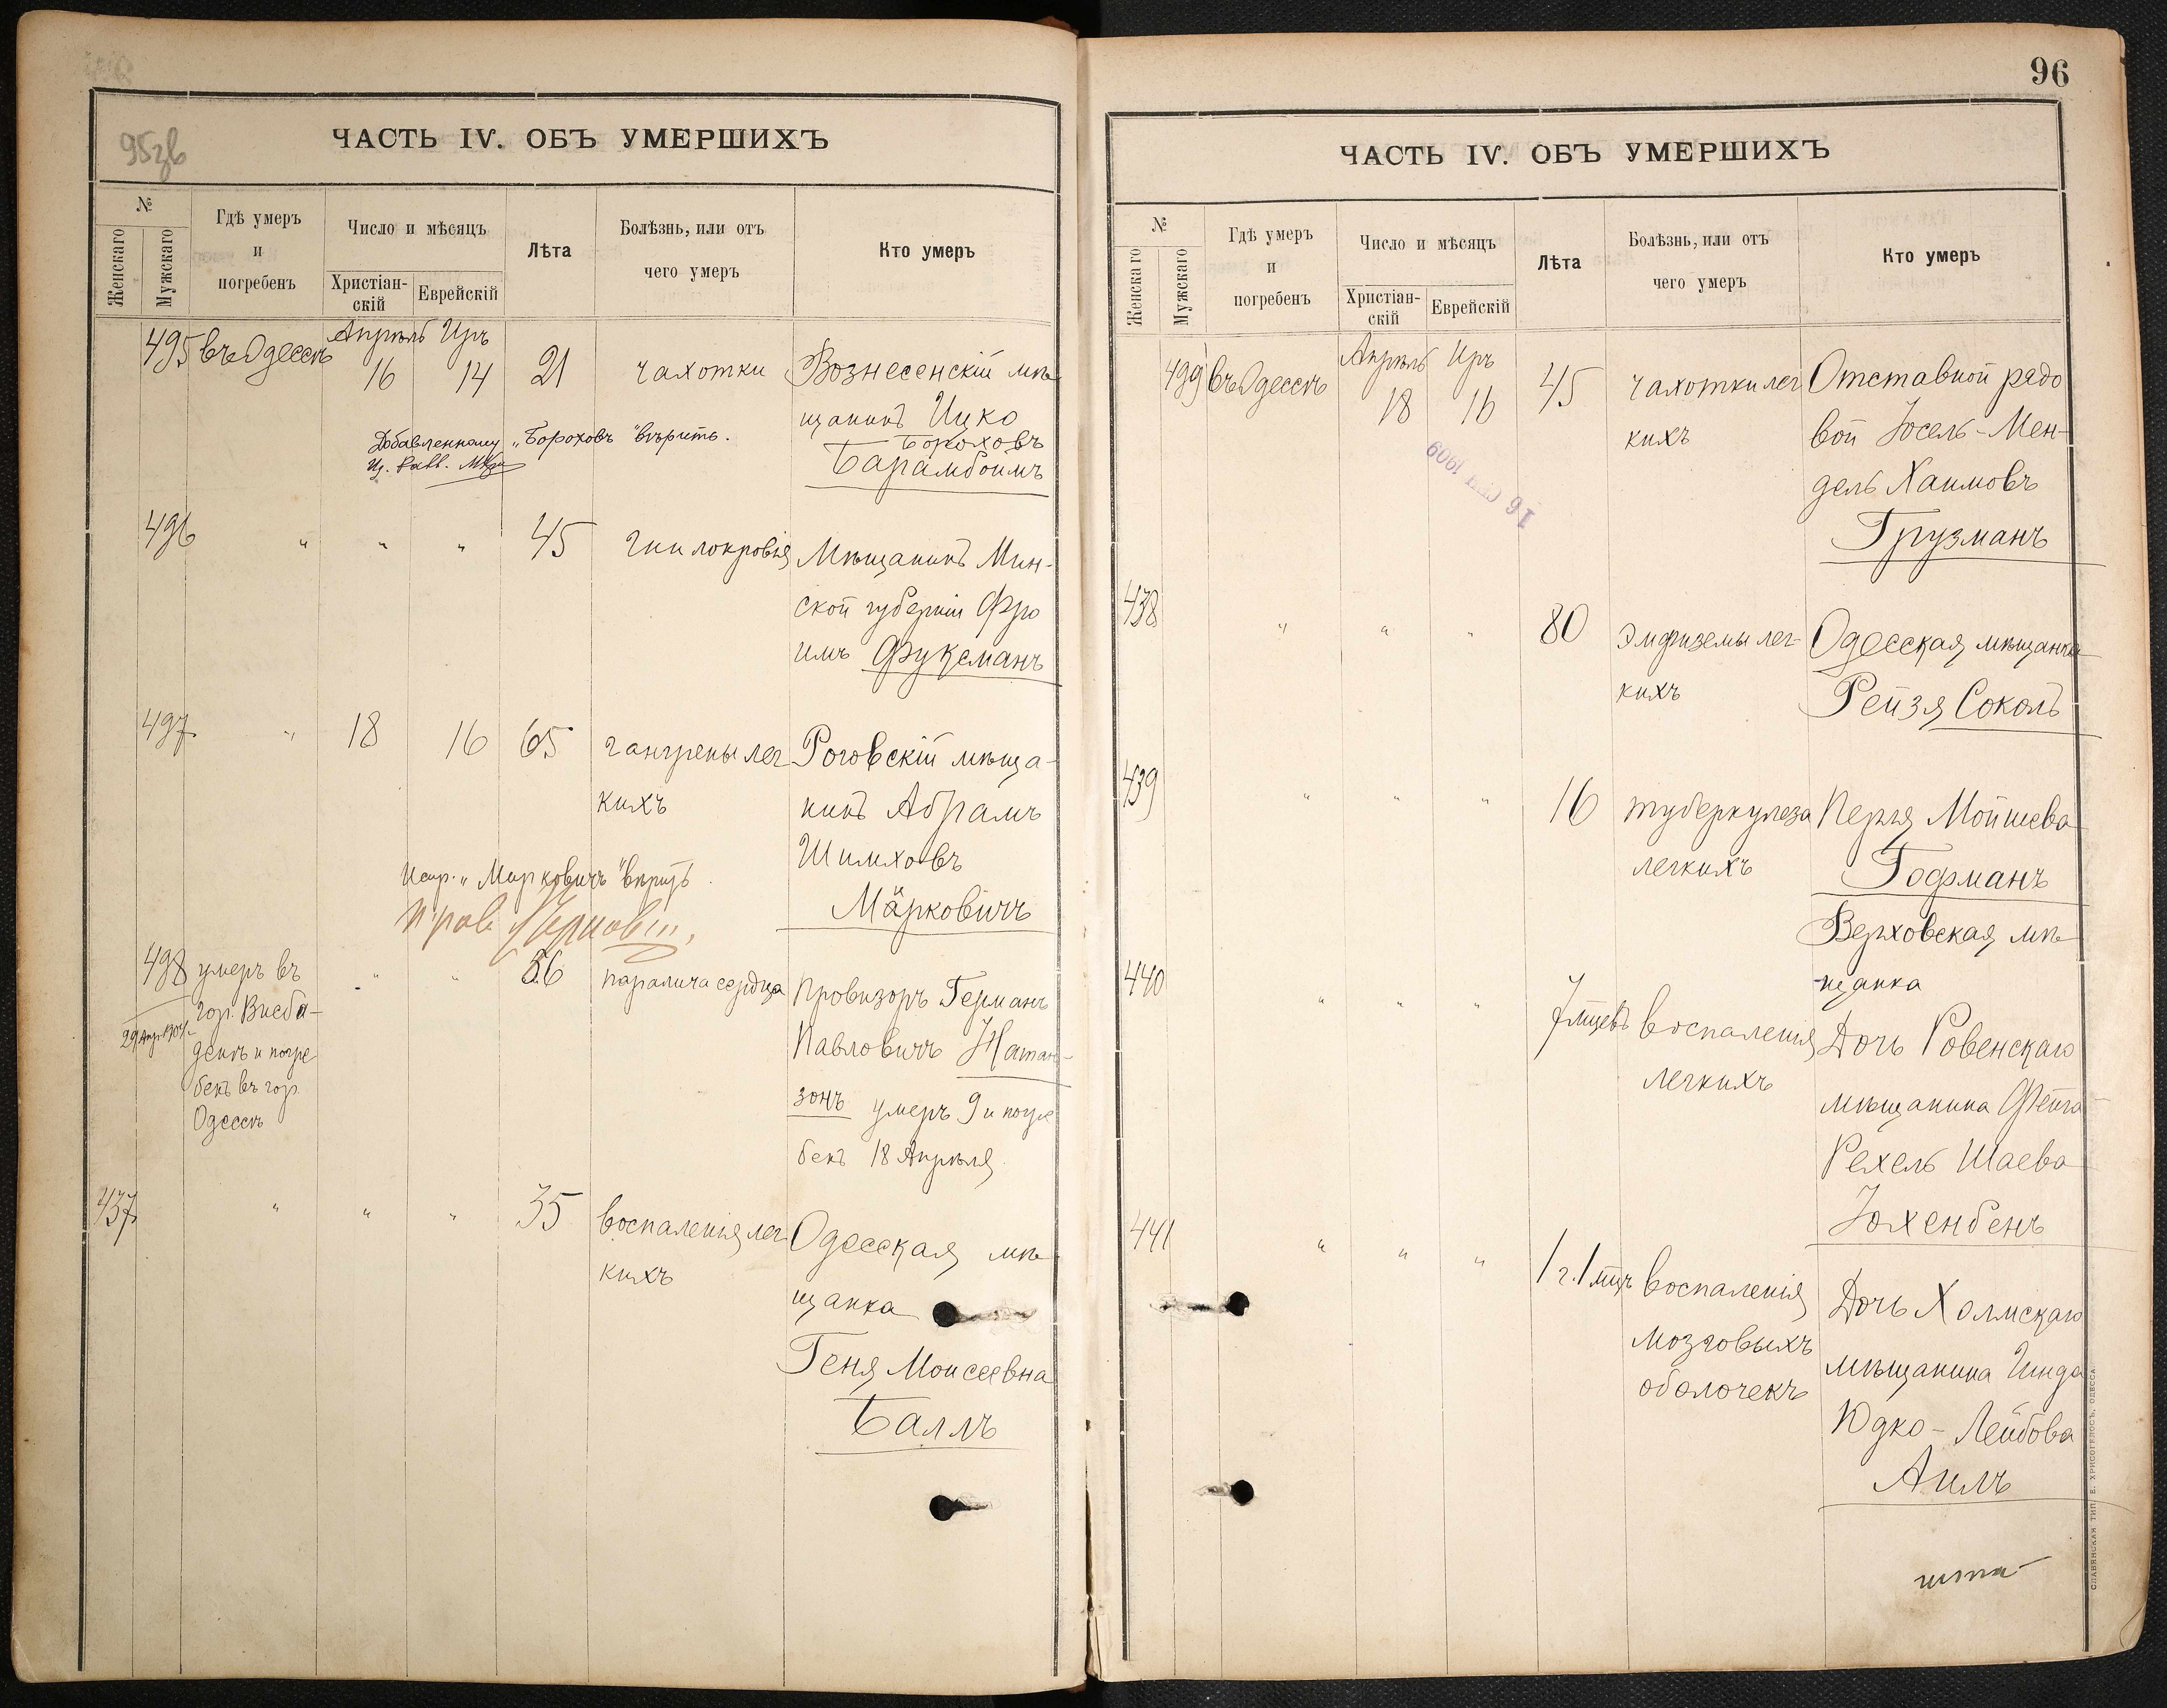 95зв
ЧАСТЬ IV. ОБЪ УМЕРШИХЪ
№
Женскаго
Мужскаго
Гдѣ умеръ
и
погребенъ
Число и мѣсяцъ
Христіан-
скій
Еврейскій
Лѣта
Болѣзнь, или отъ
чего умеръ
Кто умеръ
495 въ Одессѣ Апрѣль 16 Иръ 14 21 чахотки Вознесенскій мѣ
щанинъ Ицко
Бороховъ
Барамбоимъ
Добавленному „Бороховъ" вѣрить.
496 " " " 45 гнилокровія Мѣщанинъ Мин-
ской губерніи Фро
имъ Фуксманъ
497 " 18 16 65 гангрены лег
кихъ
Роговскій мѣща-
нинъ Абрамъ
Шимховъ
Марковичъ
Испр. „Марковичъ" вѣрить
498 умеръ въ
гор. Висба-
денѣ и погре
бенъ въ гор.
Одессѣ
" " 56 паралича сердца Провизоръ Германъ
Павловичъ Натан-
зонъ умеръ 9 и погре
бенъ 18 Апрѣля
437 " " " 35 воспаленія лег
кихъ
Одесская мѣ-
щанка
Геня Моисеевна
Баллъ
96
ЧАСТЬ IV. ОБЪ УМЕРШИХЪ
№
Женскаго
Мужскаго
Гдѣ умеръ
и
погребенъ
Число и мѣсяцъ
Христіан-
скій
Еврейскій
Лѣта
Болѣзнь, или отъ
чего умеръ
Кто умеръ
499 въ Одессѣ Апрѣль 18 Иръ 16 45 чахотки лег
кихъ
Отставной рядо
вой Іосель-Мен-
дель Хаимовъ
Грузманъ
16 1909
438 " " " 80 эмфиземы лег-
кихъ
Одесская мѣщанка
Рейзя Соколъ
439 " " " 16 туберкулеза
легкихъ
Перля Мойшева
Гофманъ
Верховская мѣ
щанка
440 " " " 7 мцевъ воспаленія
легкихъ
Дочь Ровенскаго
мѣщанина Фейга
Рехель Шаева
Іохенбенъ
441 " " " 1 г. 1 мцъ воспаленія
мозговыхъ
оболочекъ
Дочь Холмскаго
мѣщанина Гинда
Юдко-Лейбова
Аилъ
СЛАВЯНСКАЯ ТИП. Е. ХРИСОГЕЛОСЪ, ОДЕССА